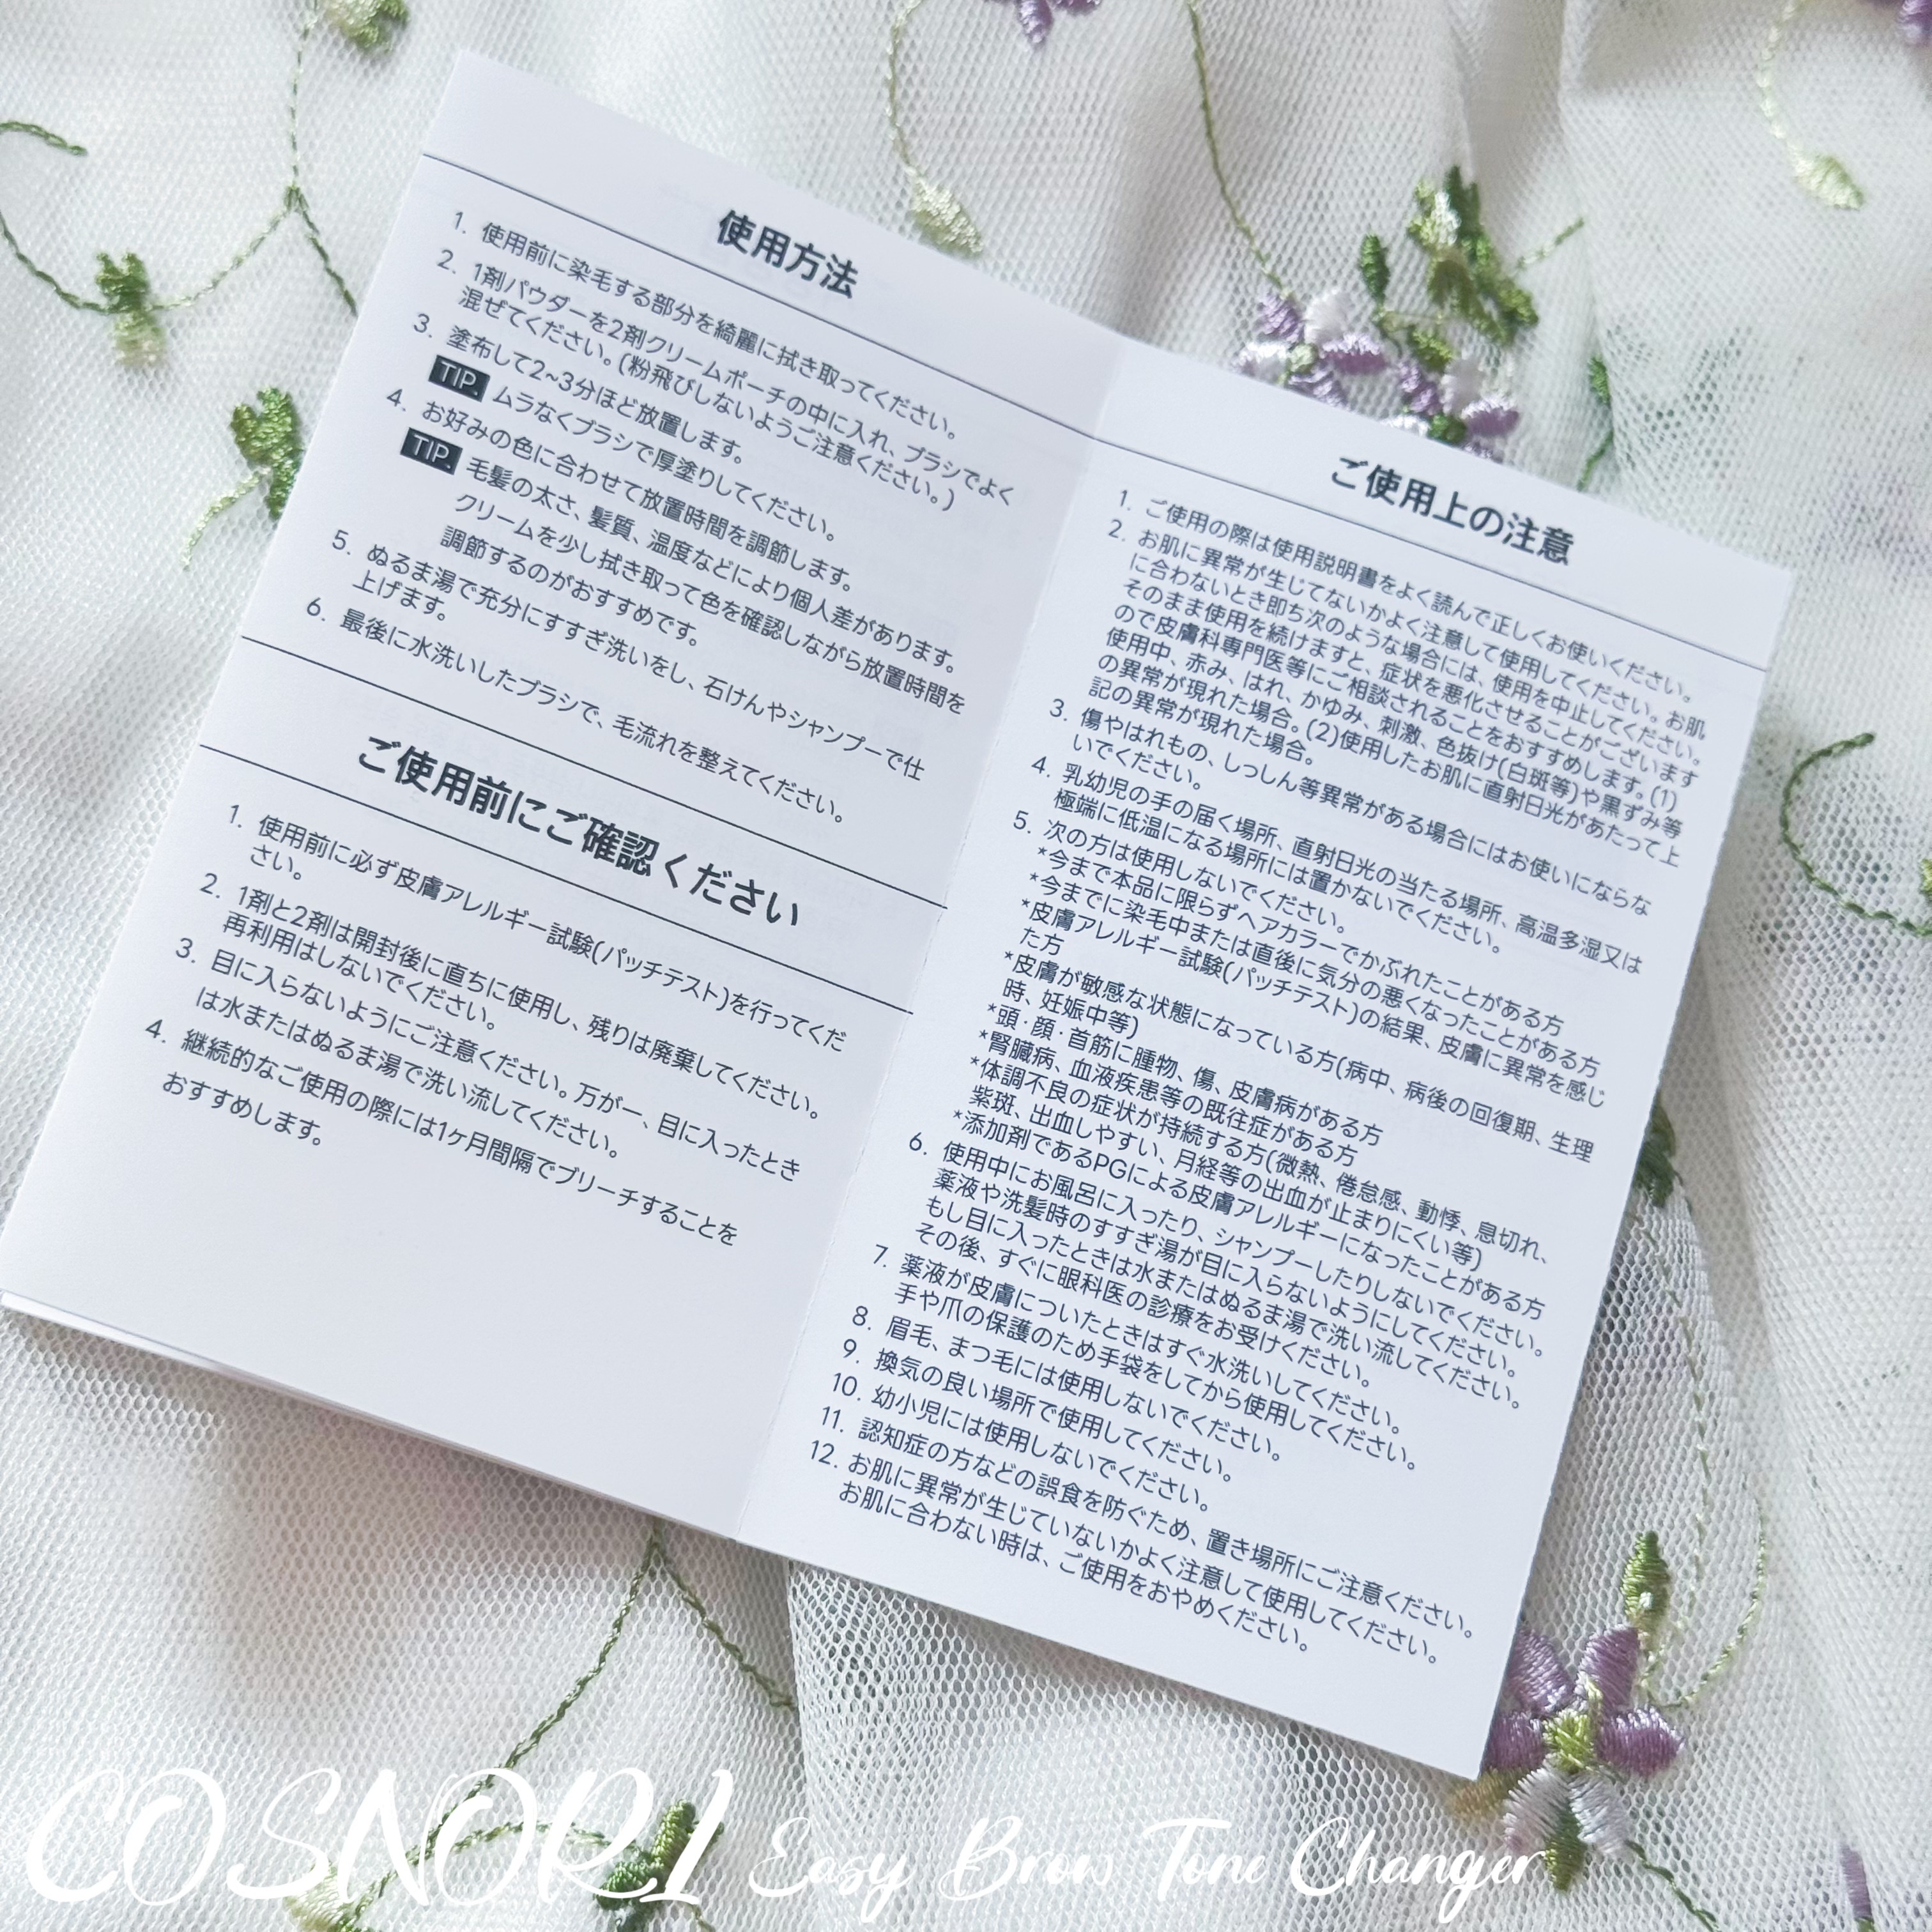 使用方法
1. 使用前に染毛する部分を綺麗に拭き取ってください。
2. 1剤パウダーを2剤クリームポーチの中に入れ、ブラシでよく
混ぜてください。(粉飛びしないようご注意ください。)
3. 塗布して2~3分ほど放置します。
TIP. ムラなくブラシで厚塗りしてください。
4. お好みの色に合わせて放置時間を調節します。
TIP. 毛髪の太さ、髪質、温度などにより個人差があります。
クリームを少し拭き取って色を確認しながら放置時間を
調節するのがおすすめです。
5. ぬるま湯で充分にすすぎ洗いをし、石けんやシャンプーで仕
上げます。
6. 最後に水洗いしたブラシで、毛流れを整えてください。
ご使用前にご確認ください
1. 使用前に必ず皮膚アレルギー試験(パッチテスト)を行ってくだ
さい。
2. 1剤と2剤は開封後に直ちに使用し、残りは廃棄してください。
再利用はしないでください。
3. 目に入らないようにご注意ください。万が一、目に入ったとき
は水またはぬるま湯で洗い流してください。
4. 継続的なご使用の際には1ヶ月間隔でブリーチすることを
おすすめします。
ご使用上の注意
1. ご使用の際は使用説明書をよく読んで正しくお使いください。
2. お肌に異常が生じてないかよく注意して使用してください。お肌
に合わないとき即ち次のような場合には、使用を中止してください。
そのまま使用を続けますと、症状を悪化させることがございます
ので皮膚科専門医等にご相談されることをおすすめします。(1)
使用中、赤み、はれ、かゆみ、刺激、色抜け(白斑等)や黒ずみ等
の異常が現れた場合。(2)使用したお肌に直射日光があたって上
記の異常が現れた場合。
3. 傷やはれもの、しっしん等異常がある場合にはお使いにならな
いでください。
4. 乳幼児の手の届く場所、直射日光の当たる場所、高温多湿又は
極端に低温になる場所には置かないでください。
5. 次の方は使用しないでください。
*今まで本品に限らずヘアカラーでかぶれたことがある方
*今までに染毛中または直後に気分の悪くなったことがある方
*皮膚アレルギー試験(パッチテスト)の結果、皮膚に異常を感じ
た方
*皮膚が敏感な状態になっている方(病中、病後の回復期、生理
時、妊娠中等)
*頭·顔·首筋に腫物、傷、皮膚病がある方
*腎臓病、血液疾患等の既往症がある方
*体調不良の症状が持続する方(微熱、倦怠感、動悸、息切れ、
紫斑、出血しやすい、月経等の出血が止まりにくい等)
*添加剤であるPGによる皮膚アレルギーになったことがある方
6. 使用中にお風呂に入ったり、シャンプーしたりしないでください。
薬液や洗髪時のすすぎ湯が目に入らないようにしてください。
もし目に入ったときは水またはぬるま湯で洗い流してください。
その後、すぐに眼科医の診療をお受けください。
7. 薬液が皮膚についたときはすぐ水洗いしてください。
手や爪の保護のため手袋をしてから使用してください。
8. 眉毛、まつ毛には使用しないでください。
9. 換気の良い場所で使用してください。
10. 幼小児には使用しないでください。
11. 認知症の方などの誤食を防ぐため、置き場所にご注意ください。
12. お肌に異常が生じていないかよく注意して使用してください。
お肌に合わない時は、ご使用をおやめください。
COSNORI Easy Brow Tone Changer